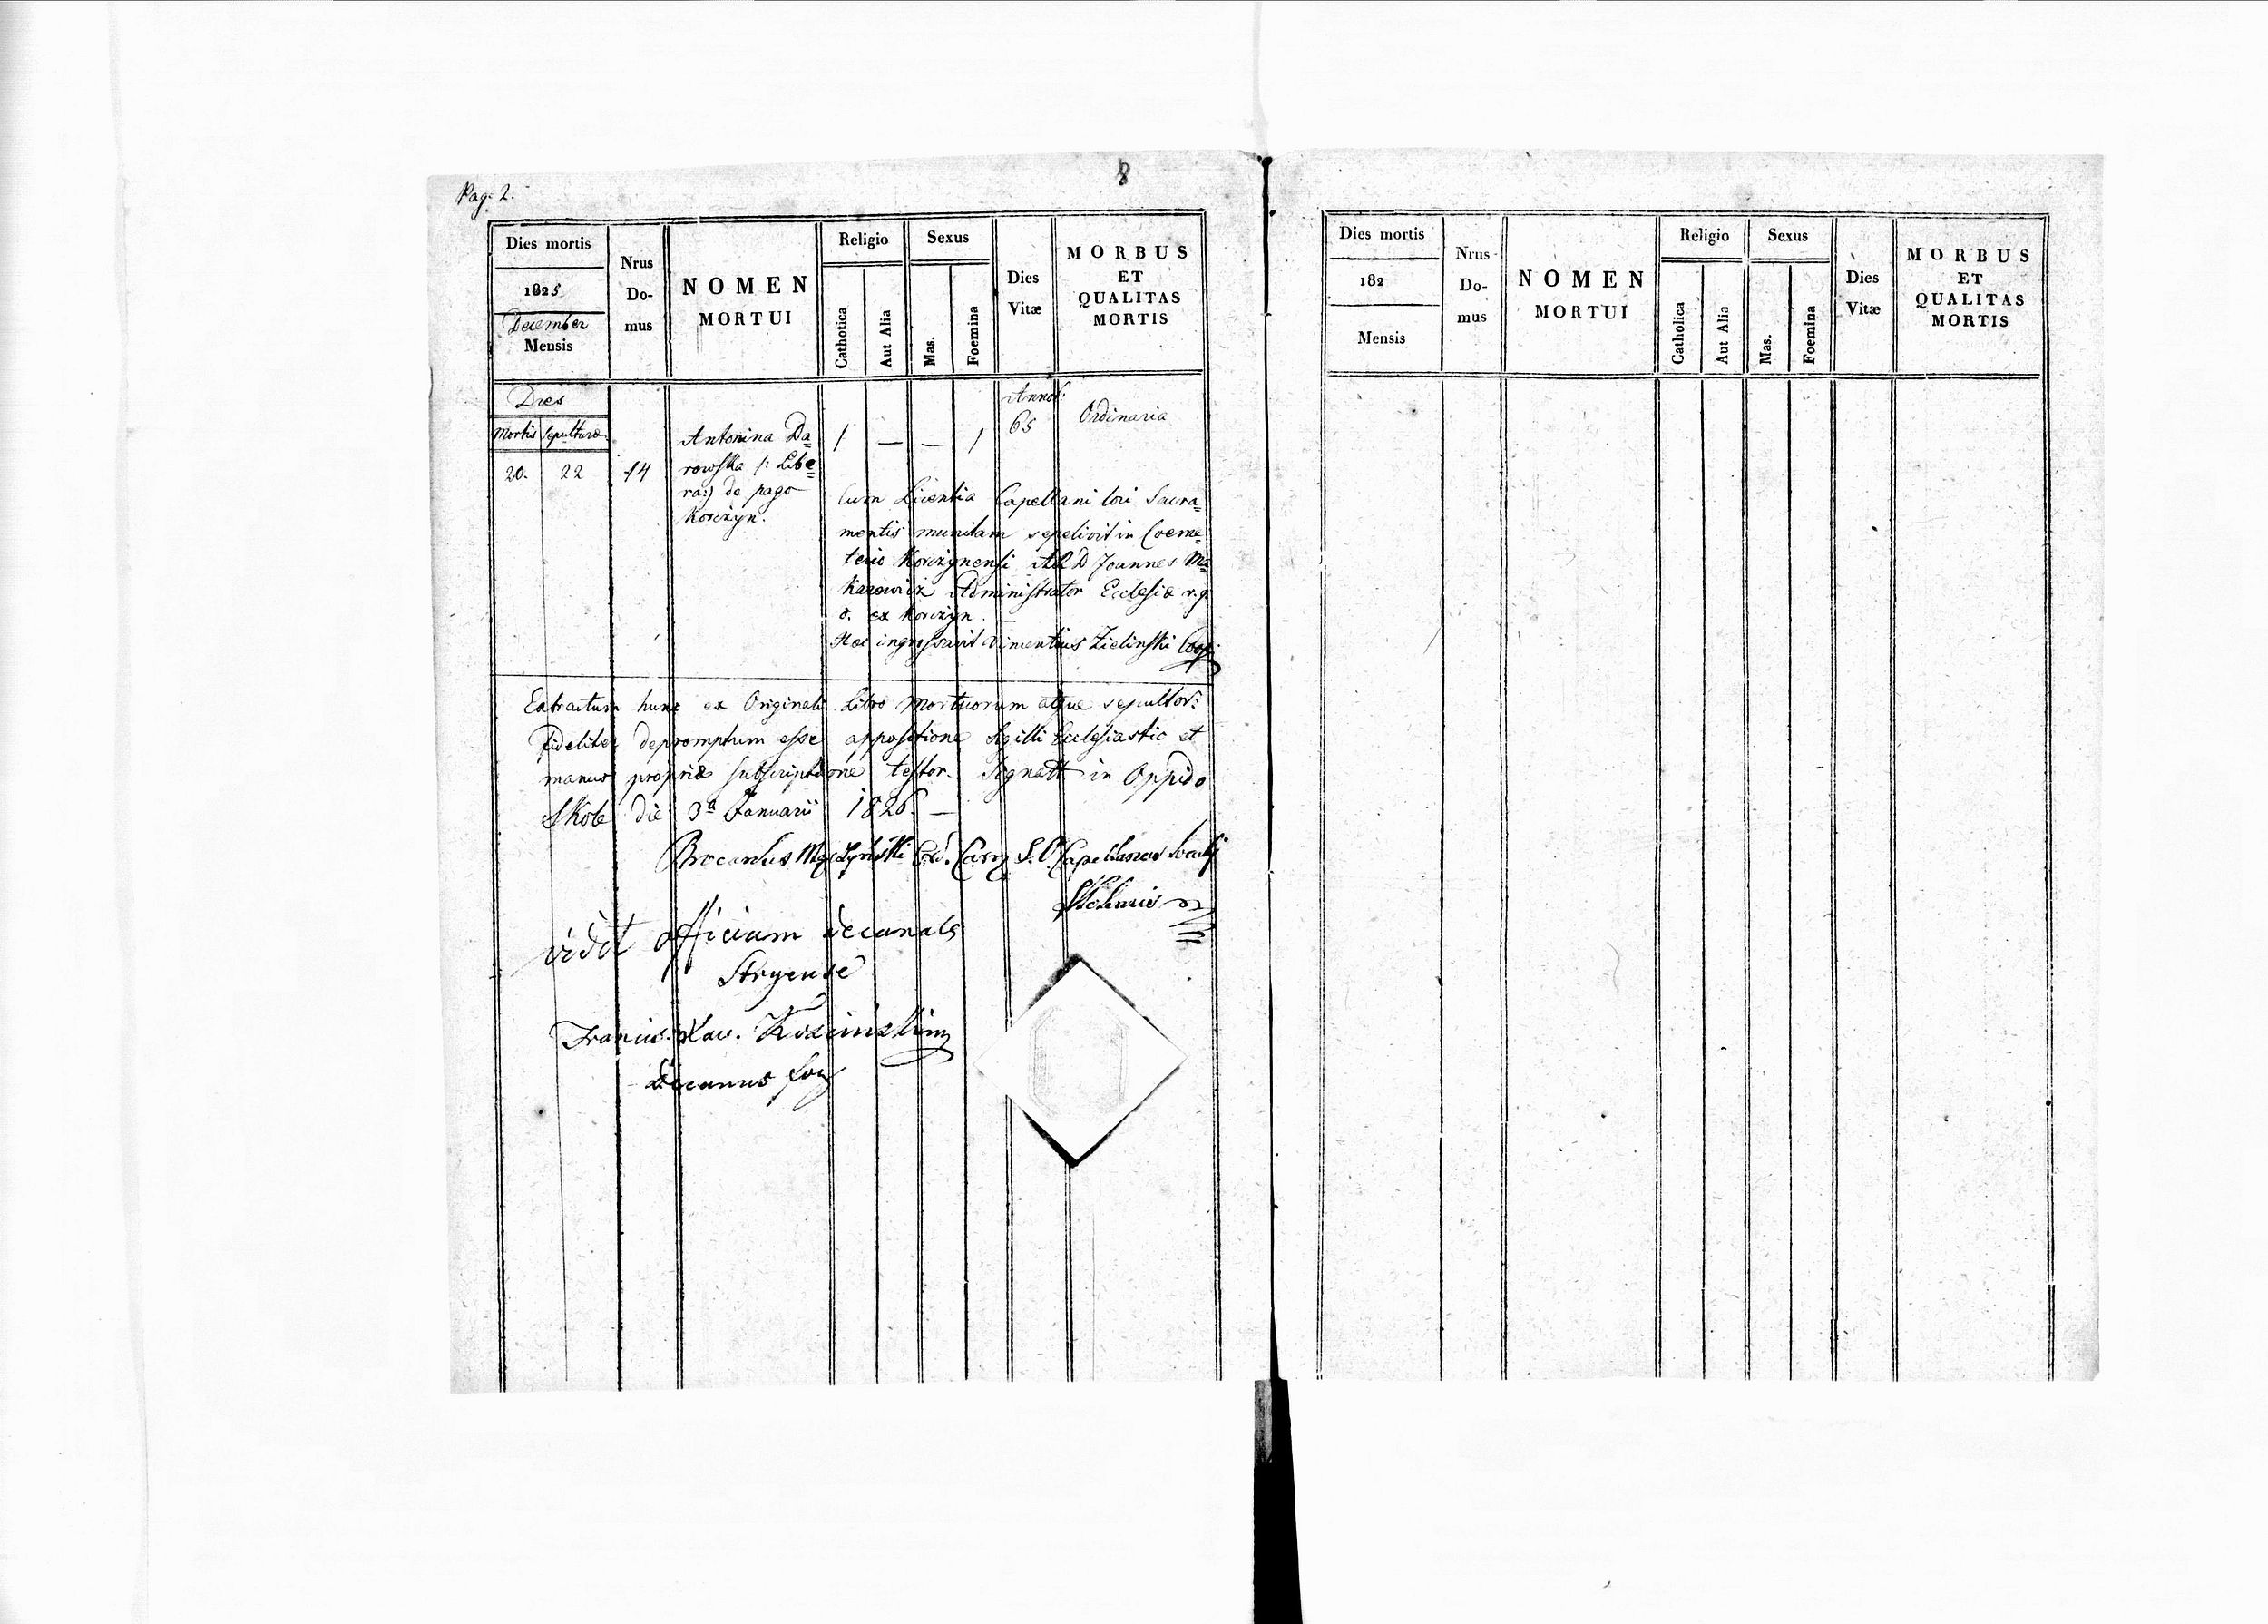 Pag. 2.
8
Dies mortis
1825
December
Mensis
Nrus
Do-
mus
NOMEN
MORTUI
Religio
Catholica
Aut Alia
Sexus
Mas.
Foemina
Dies
Vitæ
MORBUS
ET
QUALITAS
MORTIS
Dies
Mortis Sepulturæ
20. 22
14
Antonina Da=
rowska /: Libe=
ra:) de pago
Korczyn.
/ — — /
Annor:
65
Ordinaria
Cum Licentia Capellani loci Sacra=
mentis munitam sepelivit in Coeme=
terio Korczynensi Joannes Ma=
karowicz Administrator Ecclesiæ r. g.
ex Korczyn. —
Hoc ingrossavit Zielinski Coop
Extractum hunc ex Originali Libro Mortuorum atque sepultor:
fideliter depromptum esse appositione Sigilli Ecclesiastic et
manus propriæ subscriptione testor. Signatt in Oppido
Skole die 3ª Januarii 1826. —
Capellanus
vidit officium decanale
Stryense
Francis. Xav.
decanus
Dies mortis
182
Mensis
Nrus
Do-
mus
NOMEN
MORTUI
Religio
Catholica
Aut Alia
Sexus
Mas.
Foemina
Dies
Vitæ
MORBUS
ET
QUALITAS
MORTIS